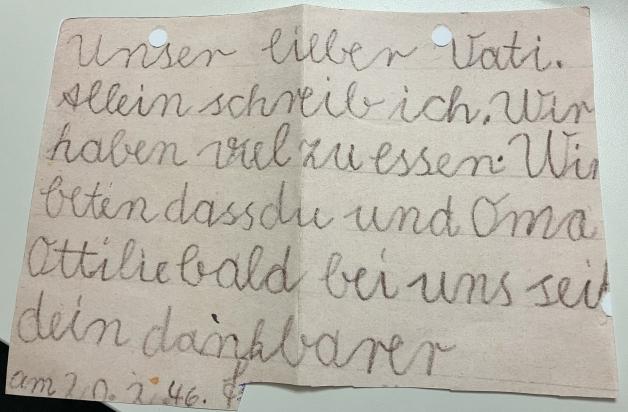 Unser lieber Vati.
Allein schreib ich. Wir
haben viel zu essen. Wir
beten dass du und Oma
Ottilie bald bei uns seit
dein dankbarer
am 46.